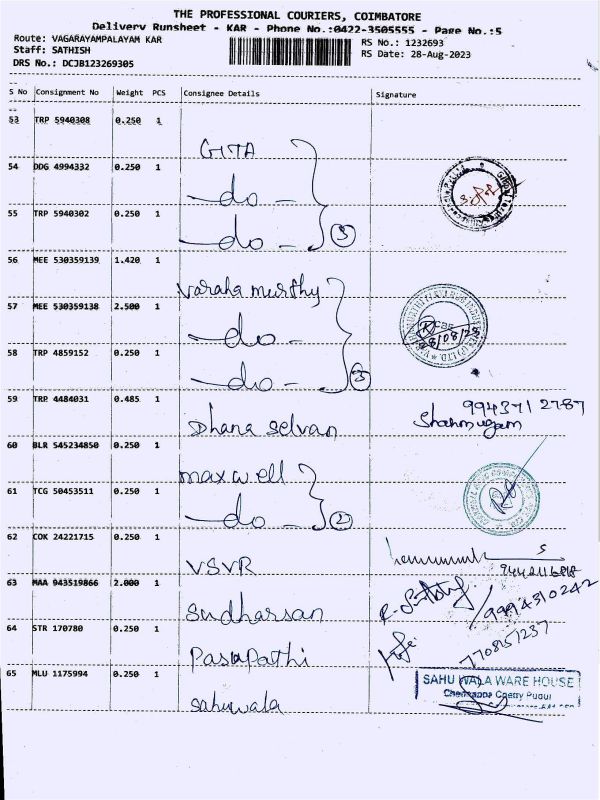 THE PROFESSIONAL COURIERS, COIMBATORE
Delivery Runsheet - KAR - Phone No.:0422-3505555 - Page No.:5
Route: VAGARAYAMPALAYAM KAR
RS No.: 1232693
Staff: SATHISH
RS Date: 28-Aug-2023
DRS No.: DCJB123269305
S No Consignment No Weight PCS Consignee Details Signature
53 TRP 5940308 0.250 1
GITA
54 DDG 4994332 0.250 1
do
55 TRP 5940302 0.250 1
do 3
56 MEE 530359139 1.420 1
Varaha murthy
57 MEE 530359138 2.500 1
do
28/08/23
58 TRP 4859152 0.250 1
do 3
59 TRP 4484031 0.485 1
Dhana selvan
9943712787
Shanmugam
60 BLR 545234850 0.250 1
maxwell
61 TCG 50453511 0.250 1
do 2
62 COK 24221715 0.250 1
VSVR
63 MAA 943519866 2.000 1
Sudharsan
9994310242
64 STR 170780 0.250 1
Pasapathi
7708151237
65 MLU 1175994 0.250 1
Sahuwala
SAHU WALA WARE HOUSE